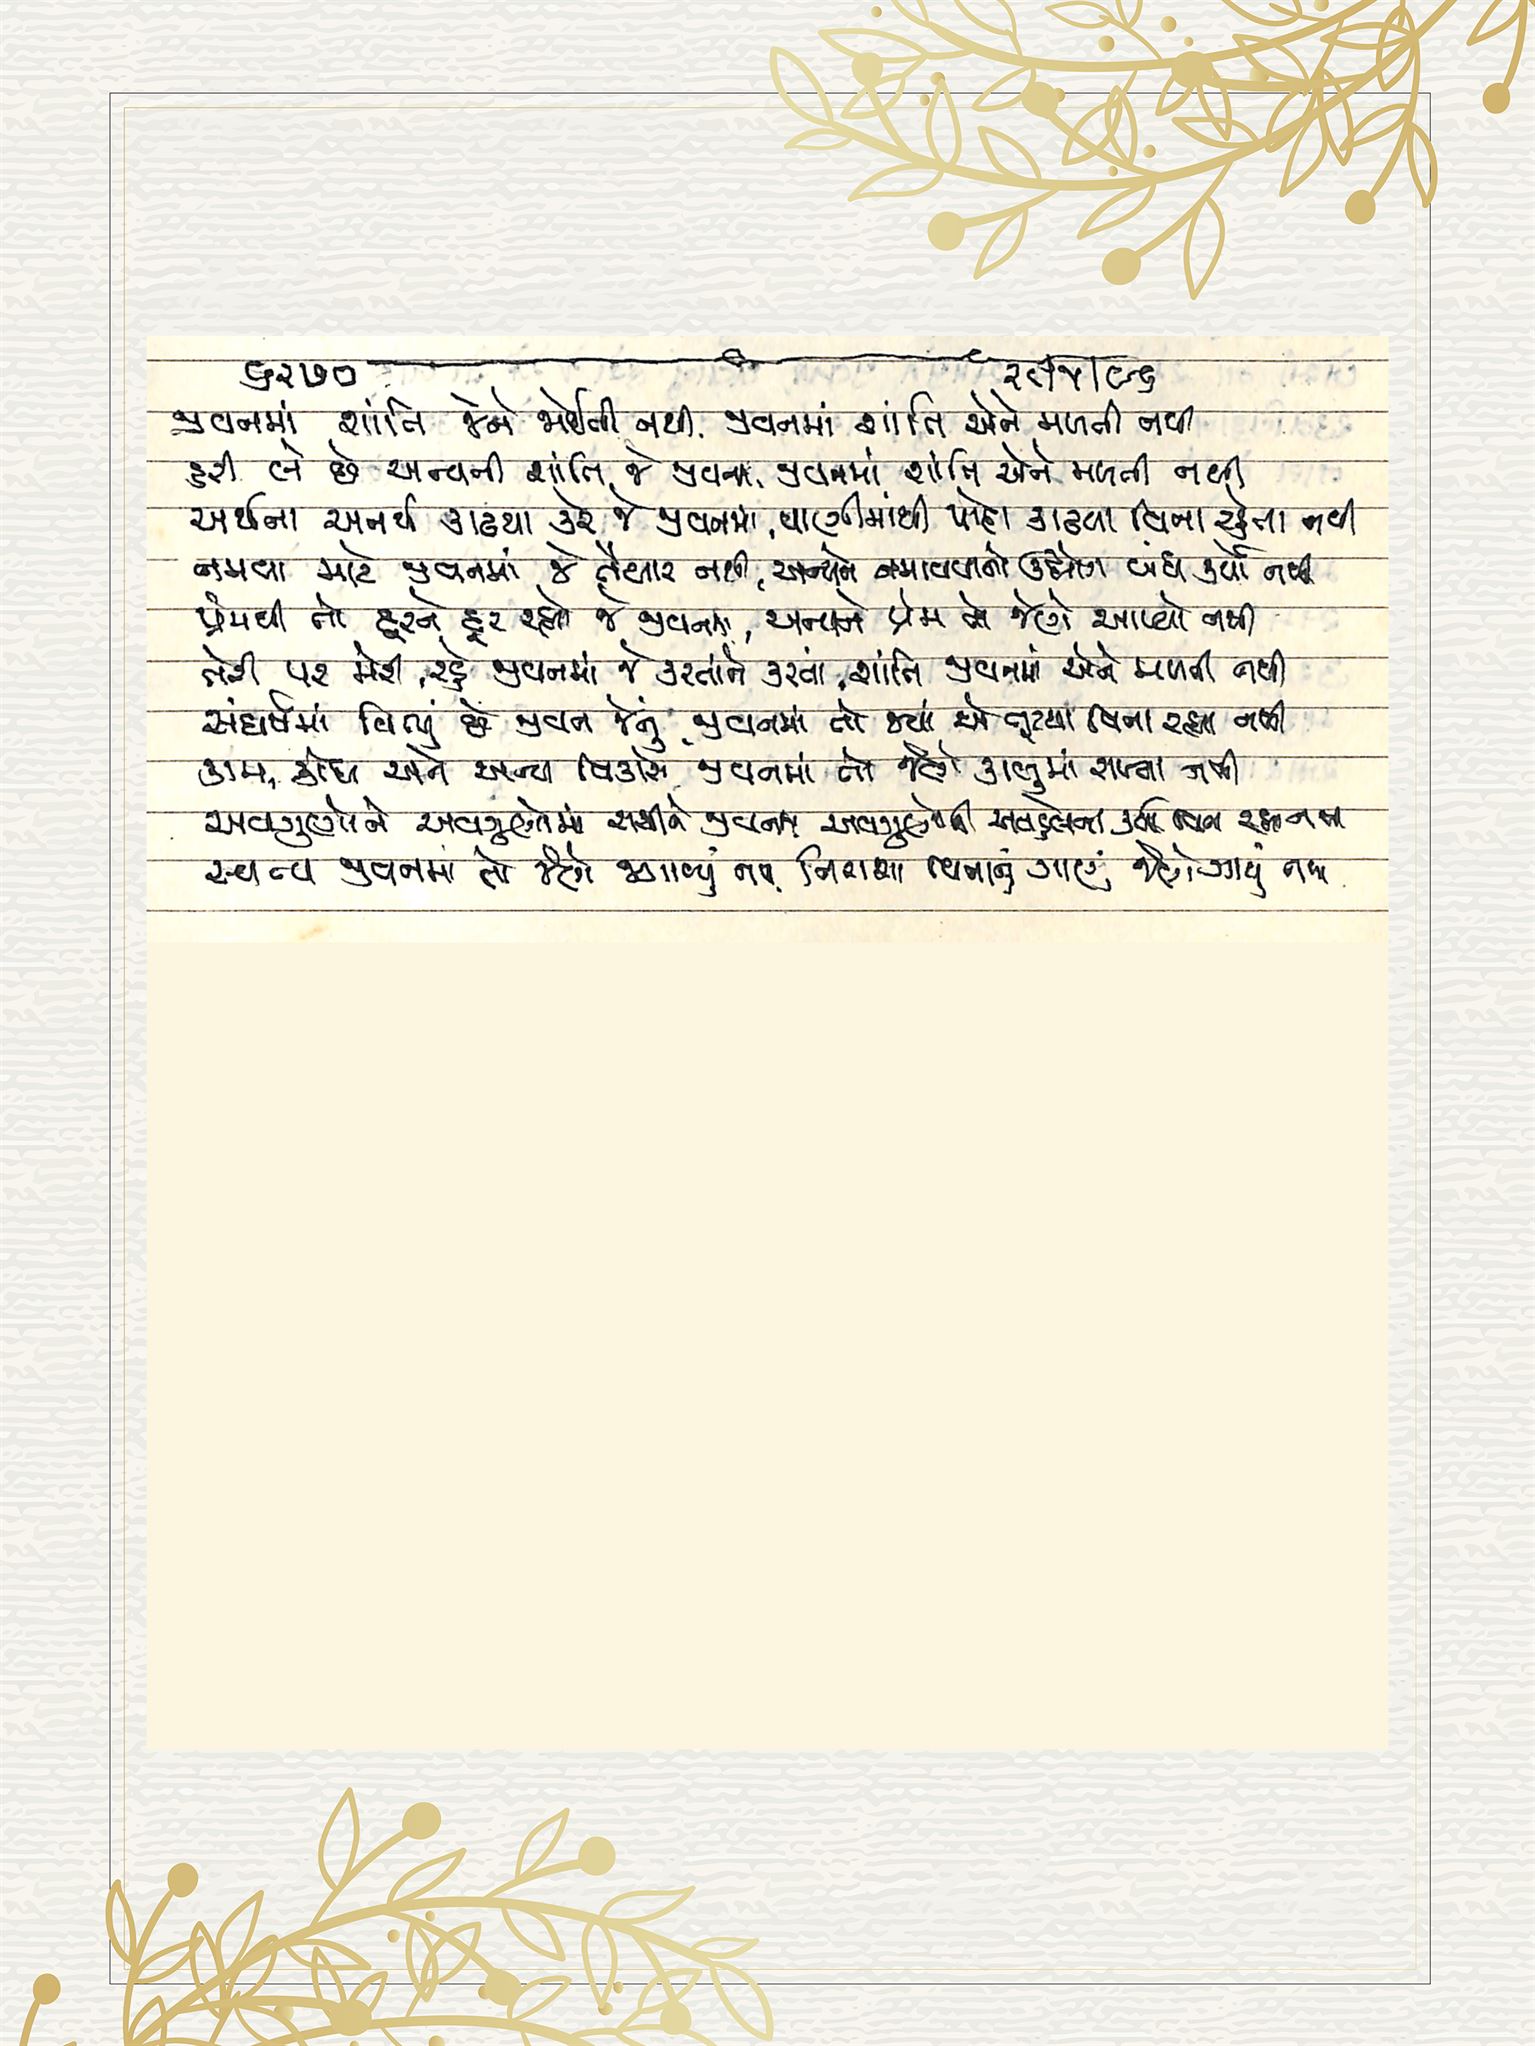 ૬૨૭૦ ૨૯/૪/૯૬
જીવનમાં શાંતિ જેને જોઈતી નથી, જીવનમાં શાંતિ એને મળતી નથી
હરી લે છે અન્યની શાંતિ જે જીવનમાં, જીવનમાં શાંતિ એને મળતી નથી
અર્થના અનર્થ કાઢયા કરે જે જીવનમાં, પાણીમાંથી પોરા કાઢવા વિના રહેતા નથી
નમવા માટે જીવનમાં જે તૈયાર નથી, અન્યને નમાવવાનો ઉદ્યોગ બંધ કર્યો નથી
પ્રેમથી તો દૂરને દૂર રહ્યો જે જીવનમાં, અન્યને પ્રેમ તો જેણે આપ્યો નથી
તેરી પર મેરી, રહે જીવનમાં જે કરતાંને કરતાં, શાંતિ જીવનમાં એને મળતી નથી
સંઘર્ષમાં વિત્યું છે જીવન જેનું, જીવનમાં તો જ્યાં એ તૂટયા વિના રહ્યા નથી
કામ, ક્રોધ અને અન્ય વિકારો જીવનમાં તો જેણે કાબુમાં રાખ્યા નથી
અવગુણોને અવગુણોમાં રાચીને જીવનમાં અવગુણોની અવહેલના કર્યા વિના રહ્યા નથી
જીવનમાં તો જેણે નથી, નિરાશા વિનાનું ગાણું જેણે ગાયું નથી